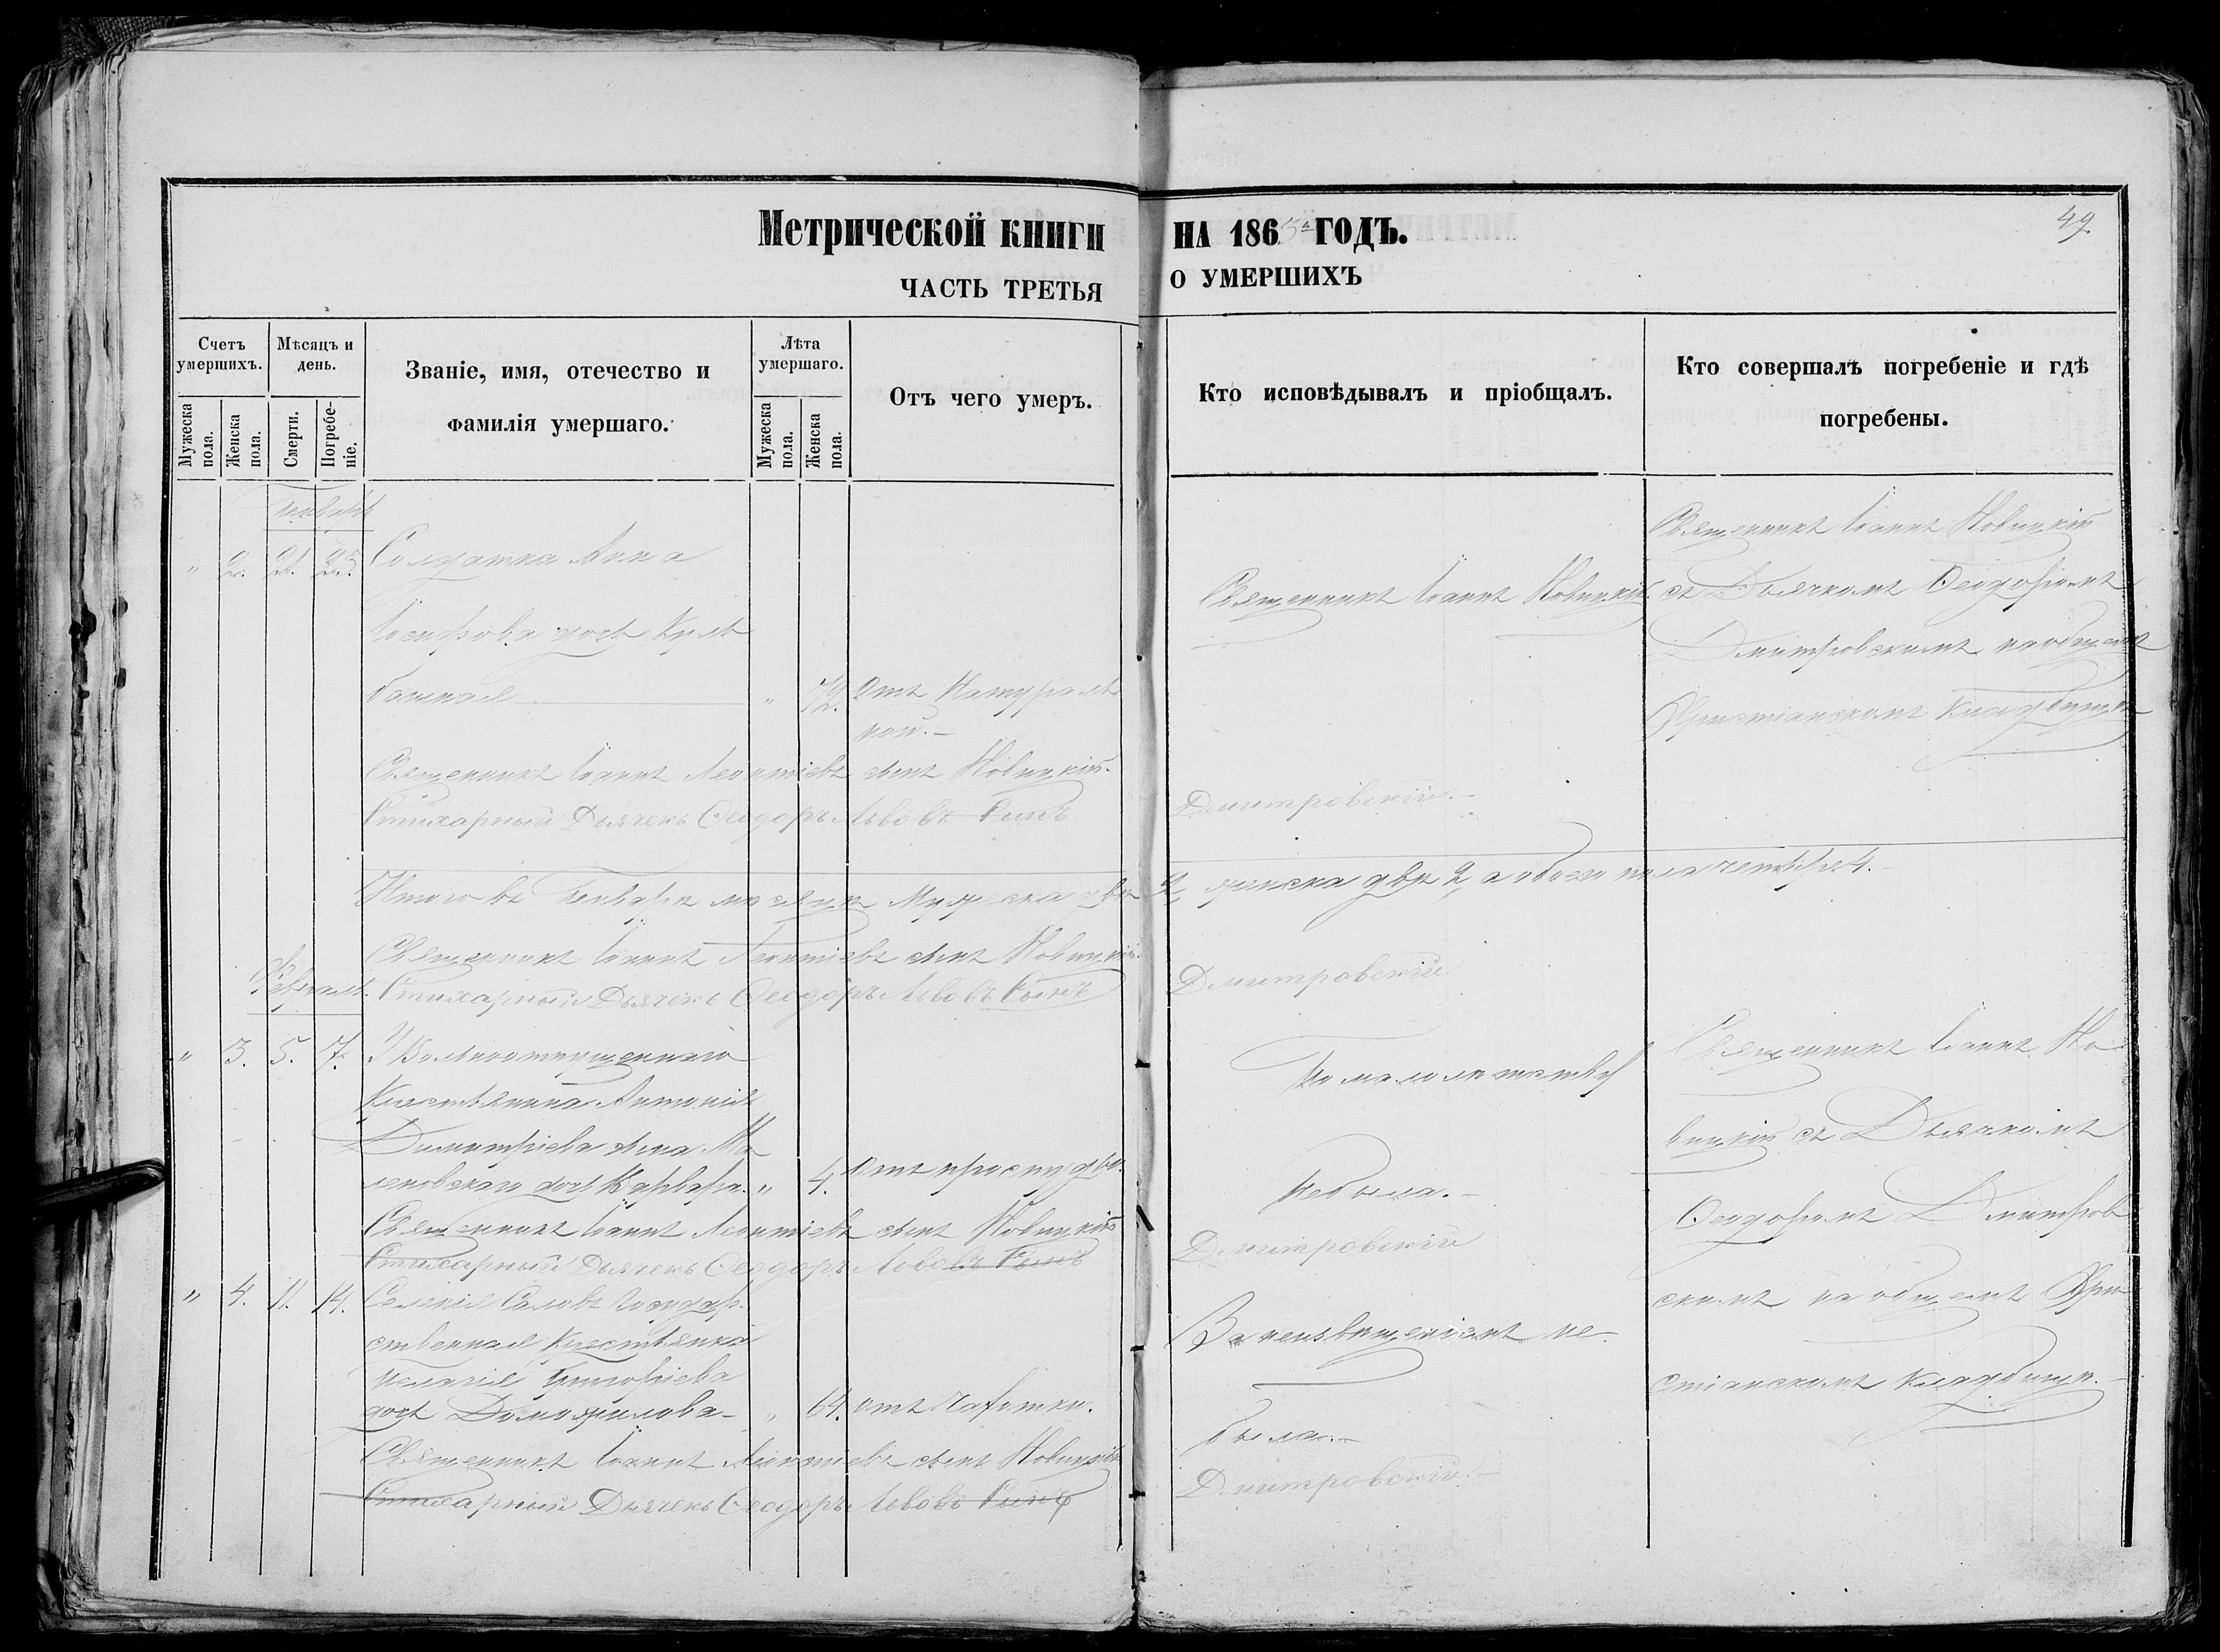 49
Метрической книги НА 1865й ГОДЪ.
ЧАСТЬ ТРЕТЬЯ О УМЕРШИХЪ
Счетъ умершихъ.
Мужеска пола.
Женска пола.
Мѣсяцъ и день.
Смерти.
Погребеніе.
Званіе, имя, отечество и фамилія умершаго.
Лѣта умершаго.
Мужеска пола.
Женска пола.
Отъ чего умеръ.
Кто исповѣдывалъ и пріобщалъ.
Кто совершалъ погребеніе и гдѣ погребены.
Генварь
" 2. 21. 23. Солдатка Анна
Іосифова дочь Куль
башная " 72. Отъ Натураль
ной.
Священникъ Іоаннъ Новицкій
Священникъ Іоаннъ Новицкій
съ Дьячкомъ Ѳеодоромъ
Дмитровскимъ на общемъ
Христіанскомъ кладбищѣ
Священникъ Іоаннъ Леонтіевъ сынъ Новицкій.
Стихарный Дьячекъ Ѳеодоръ Львовъ Сынъ Дмитровскій.
Итого въ Генварѣ мѣсяцѣ Мужеска два 2, женска двѣ 2, а обоего пола четыре 4.
Священникъ Іоаннъ Леонтіевъ сынъ Новицкій.
Февраль. Стихарный Дьячекъ Ѳеодоръ Львовъ Сынъ Дмитровскій
" 3. 5. 7. У Вольноотпущеннаго
Крестьянина Антонія
Димитріева сына Ма
леновскаго дочь Варвара. " 4. Отъ простуды.
По малолетству
небыла.
Священникъ Іоаннъ Но
вицкій съ Дьячкомъ
Ѳеодоромъ Дмитров
скимъ на общемъ Хри
стіанскомъ кладбищѣ.
Священникъ Іоаннъ Леонтіевъ сынъ Новицкій
Стихарный Дьячекъ Ѳеодоръ Львовъ Сынъ Дмитровскій
" 4. 11. 14. Селенія Государ
ственная Крестьянка
Пелагія Григоріева
дочь " 64. отъ чахотки.
За неизвѣщеніемъ не
была.
Священникъ Іоаннъ Леонтіевъ сынъ Новицкій
Стихарный Дьячекъ Ѳеодоръ Львовъ Сынъ Дмитровскій.